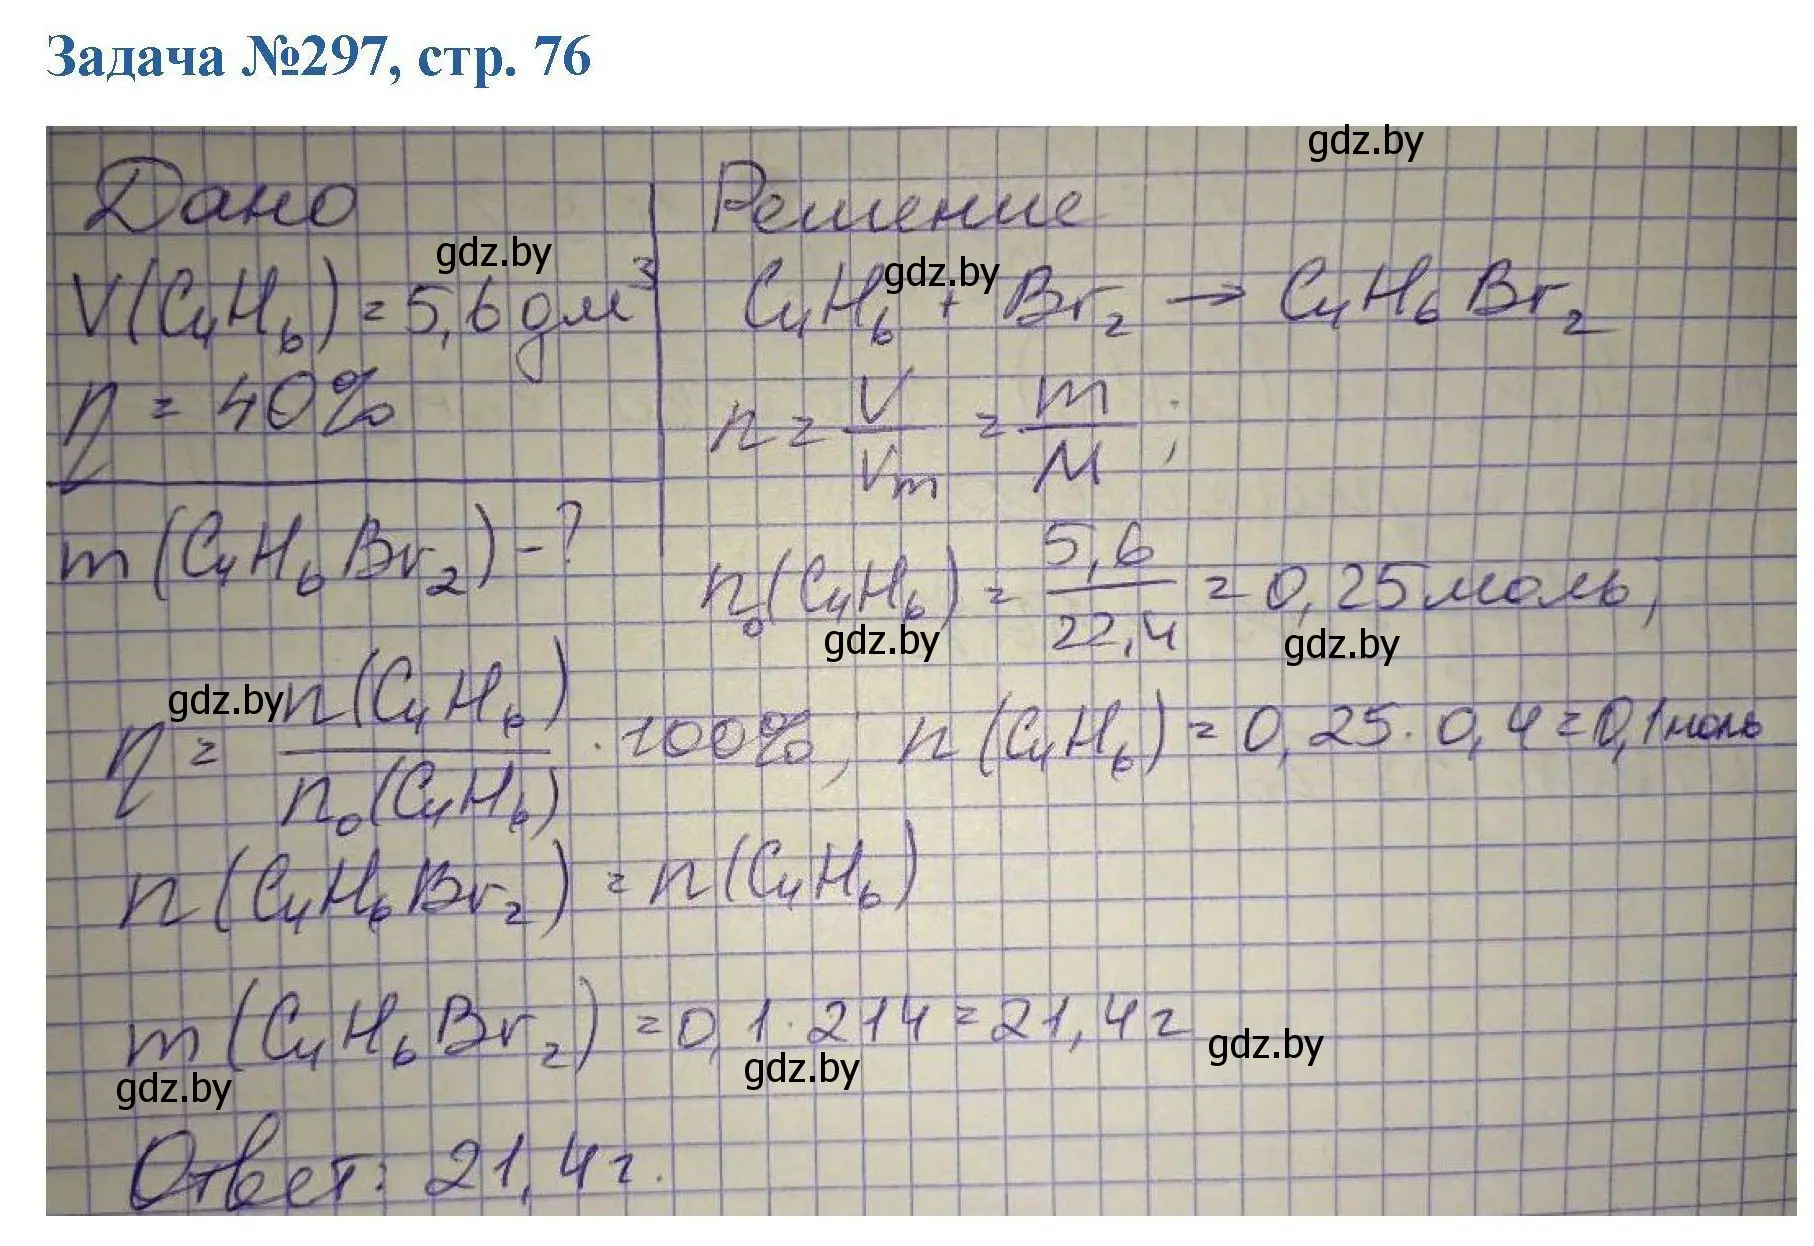 Задача №297, стр. 76
gdz.by
Дано
Решение
V(C₄H₆) = 5,6 дм³
gdz.by
C₄H₆ + Br₂ → C₄H₆Br₂
gdz.by
η = 40%
n = V/Vm = m/M ;
m(C₄H₆Br₂) - ?
n₀(C₄H₆) = 5,6/22,4 = 0,25 моль;
gdz.by
gdz.by
gdz.by
η = n(C₄H₆)/n₀(C₄H₆) · 100%, n(C₄H₆) = 0,25 · 0,4 = 0,1 моль
n(C₄H₆Br₂) = n(C₄H₆)
m(C₄H₆Br₂) = 0,1 · 214 = 21,4 г
gdz.by
gdz.by
gdz.by
Ответ: 21,4 г.